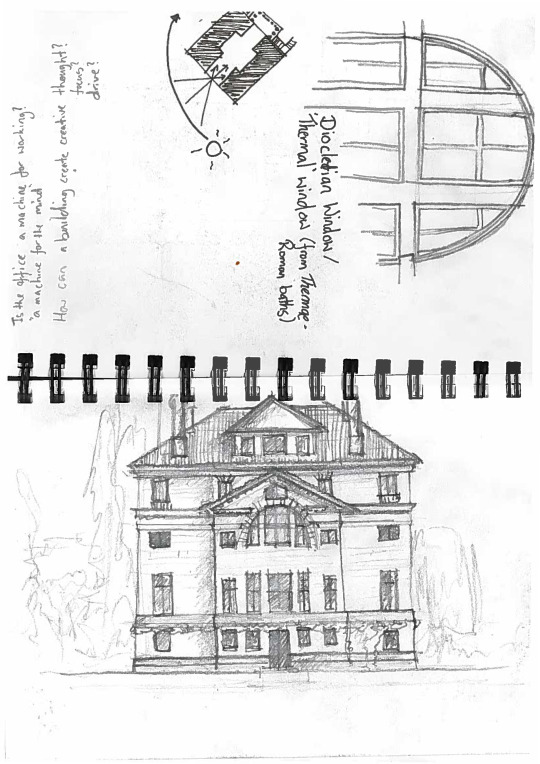 Is the office a machine for working?
'a machine for the mind'
How can a building create creative thought?
focus?
drive?
Diocletian Window/
'Thermal' window (from Thermae -
Roman baths)